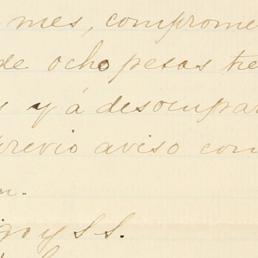 mes, comprome
de ocho pesos tre
s y á desocupar
previo aviso con
n.
go y S.S.